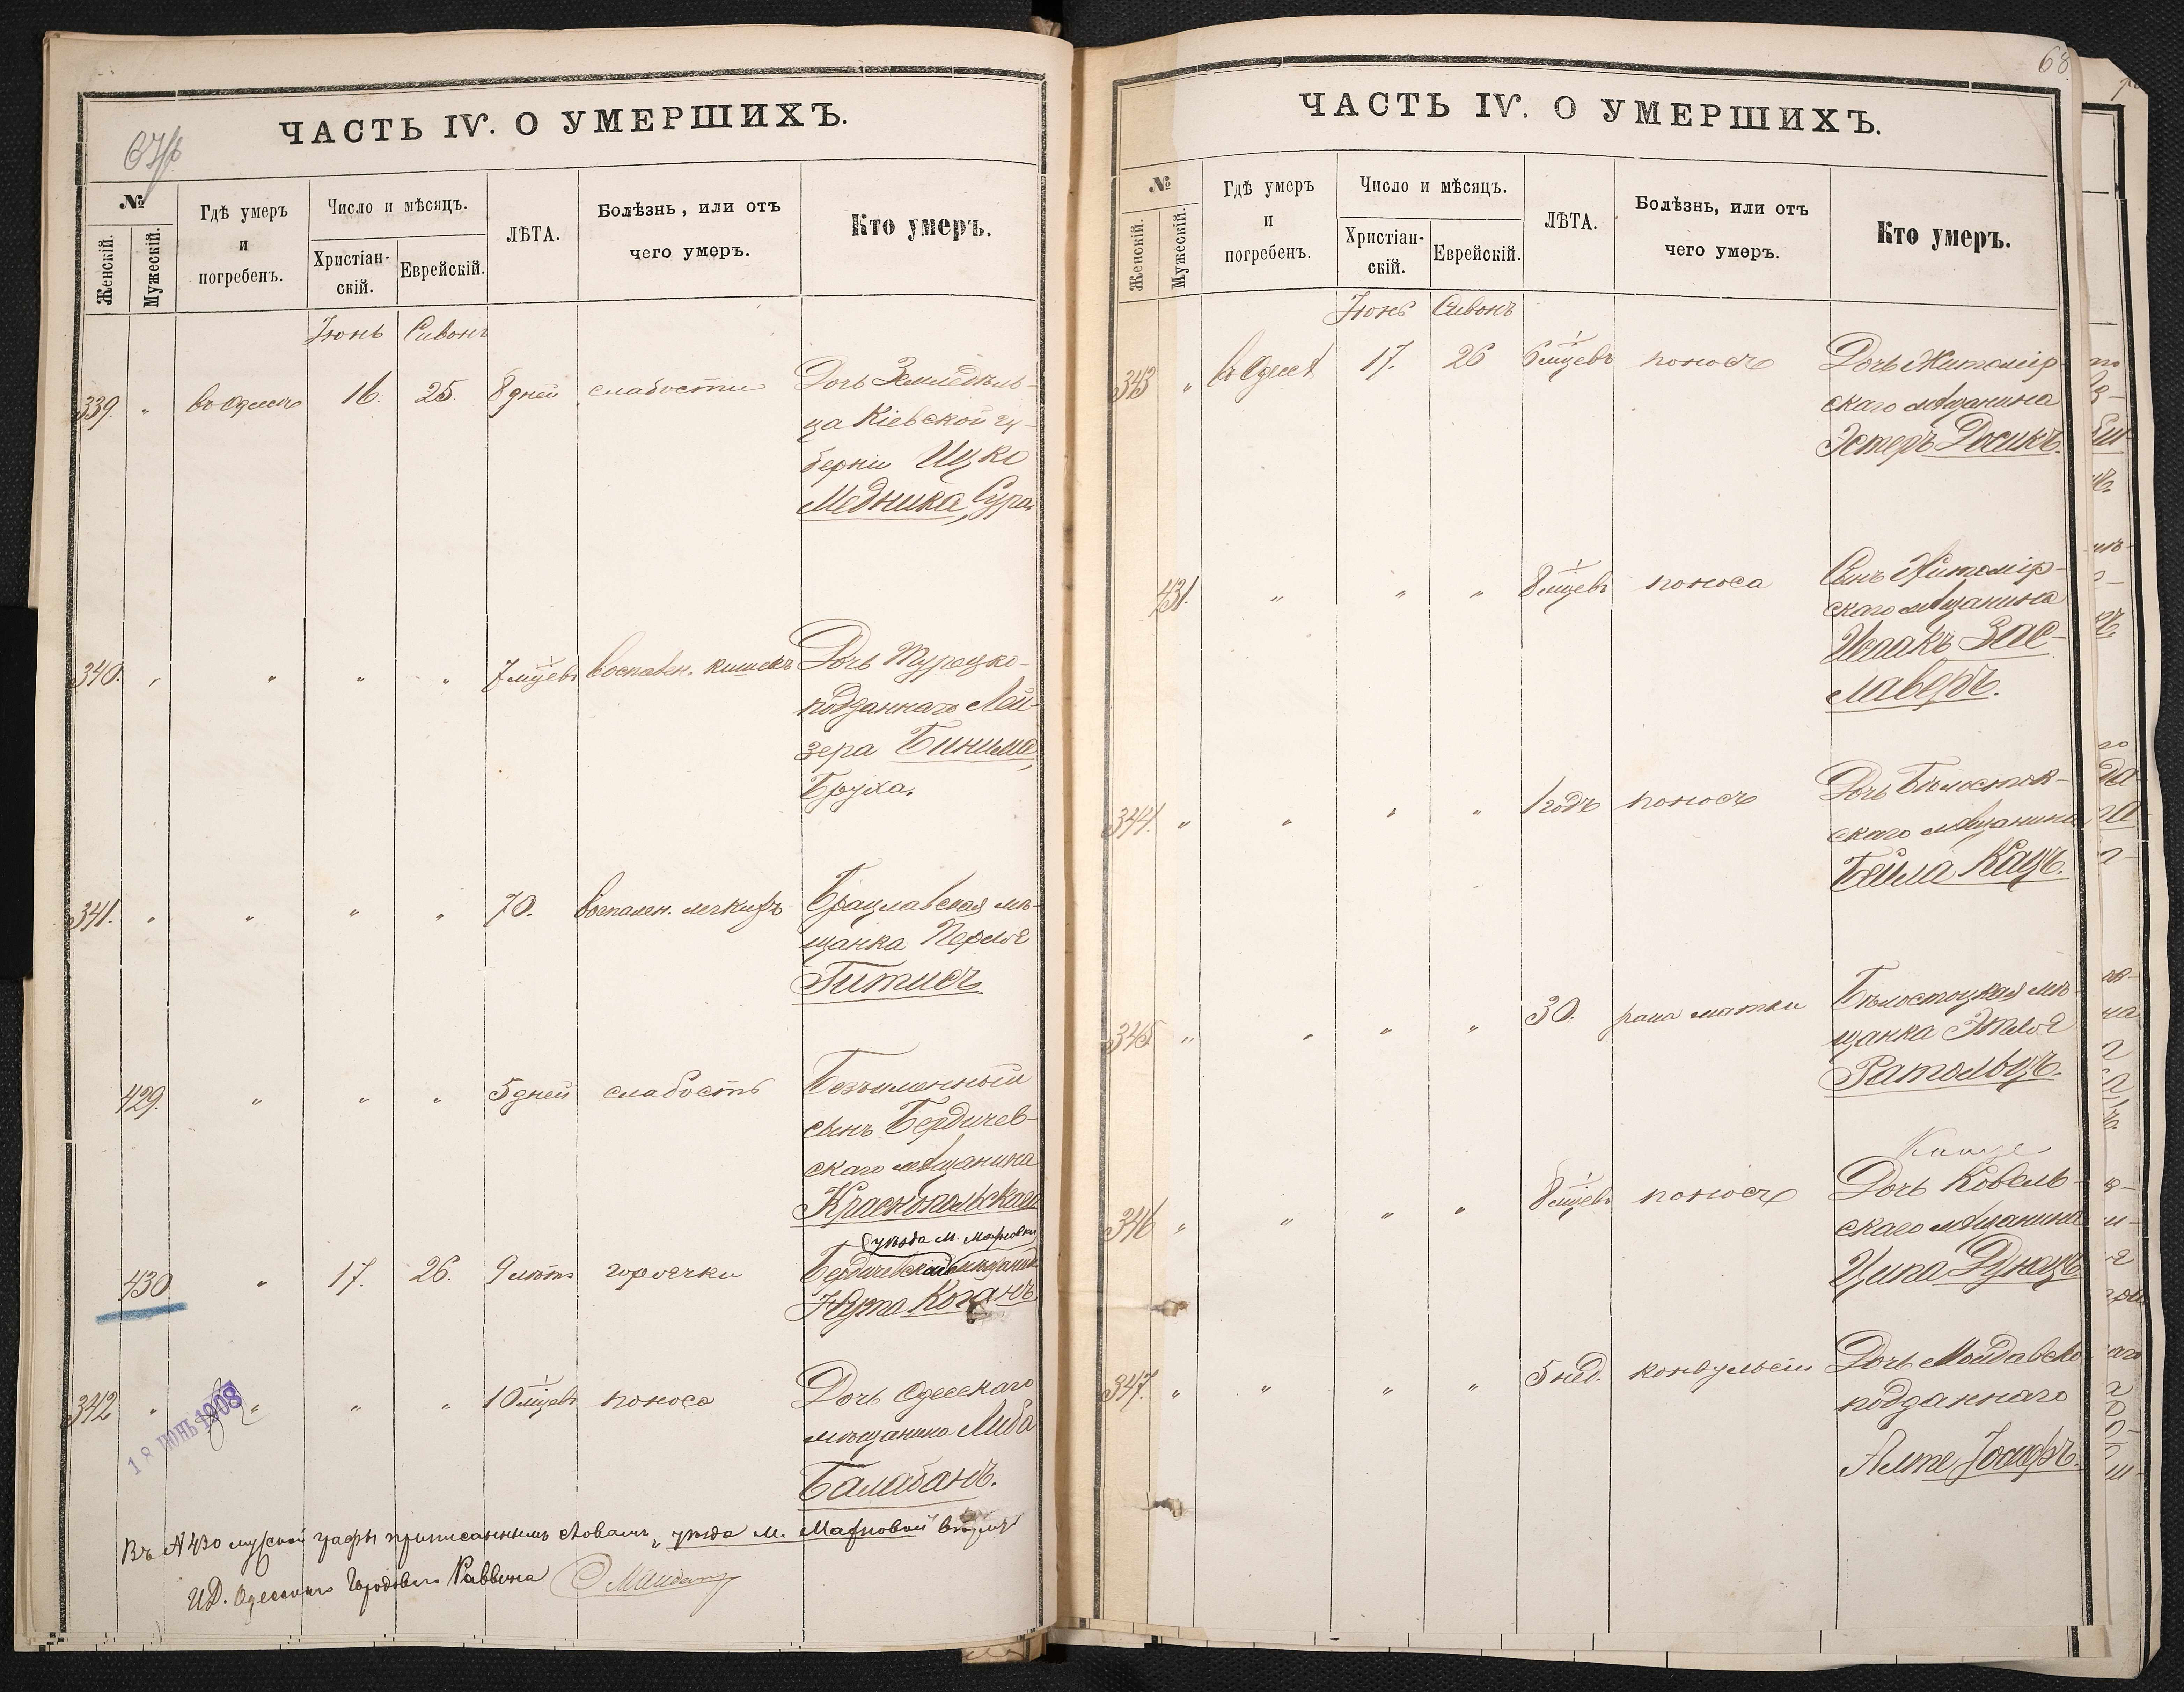 67/об
ЧАСТЬ IV. О УМЕРШИХЪ.
№
Женскій.
Мужескій.
Гдѣ умеръ
и
погребенъ.
Число и мѣсяцъ.
Христіан-
скій.
Еврейскій.
ЛѢТА.
Болѣзнь, или отъ
чего умеръ.
Кто умеръ.
Іюнь Сивонъ
339. " въ Одессѣ 16. 25. 8 дней слабости Дочь Земледѣль-
ца Кіевской гу-
берніи Ицко
Медника, Сура
340. " " " " 7 мцевъ воспален. кишекъ Дочь Турецко-
подданнаго Лей-
зера Бинима,
Бруха.
341. " " " " 70. воспален. легкихъ Брацлавская мѣ-
щанка Перля
Гитисъ
429. " " " 5 дней слабость Безъименный
сынъ Бердичев-
скаго мѣщанина
Краснопольскаго
уѣзда м. Махновки
430 " 17. 26. 9 лѣтъ горячки Бердичевскій мѣщанин
Нута Коганъ
342 " " " " 10 мцевъ поноса Дочь Одесскаго
мѣщанина Либа
Балабанъ.
18 ІЮНЬ 1908
Въ № 430 мужской графы приписаннымъ словамъ „уѣзда м. Махновки" вѣрить
И.Д. Одесскаго Городового Раввина
68
ЧАСТЬ IV. О УМЕРШИХЪ.
№
Женскій.
Мужескій.
Гдѣ умеръ
и
погребенъ.
Число и мѣсяцъ.
Христіан-
скій.
Еврейскій.
ЛѢТА.
Болѣзнь, или отъ
чего умеръ.
Кто умеръ.
Іюнь Сивонъ
343 " въ Одессѣ 17. 26 6 мцевъ поносъ Дочь Житомір-
скаго мѣщанина
Эстеръ Досикъ.
431. " " " 8 мцевъ поноса Сынъ Житомір-
скаго мѣщанина
Исаакъ Зас-
лаверъ.
344. " " " " 1 годъ поносъ Дочь Бѣлосток-
скаго мѣщанина
Бейла Кацъ.
345 " " " " 30. рака матки Бѣлостоцкая мѣ-
щанка Этля
Ратольцъ.
346 " " " " 8 мцевъ поносъ Дочь Ковель-
скаго мѣщанина
Ципа Дунецъ
347. " " " " 5 нед. конвульсіи Дочь Молдавско
подданнаго
Алте Іосифъ.